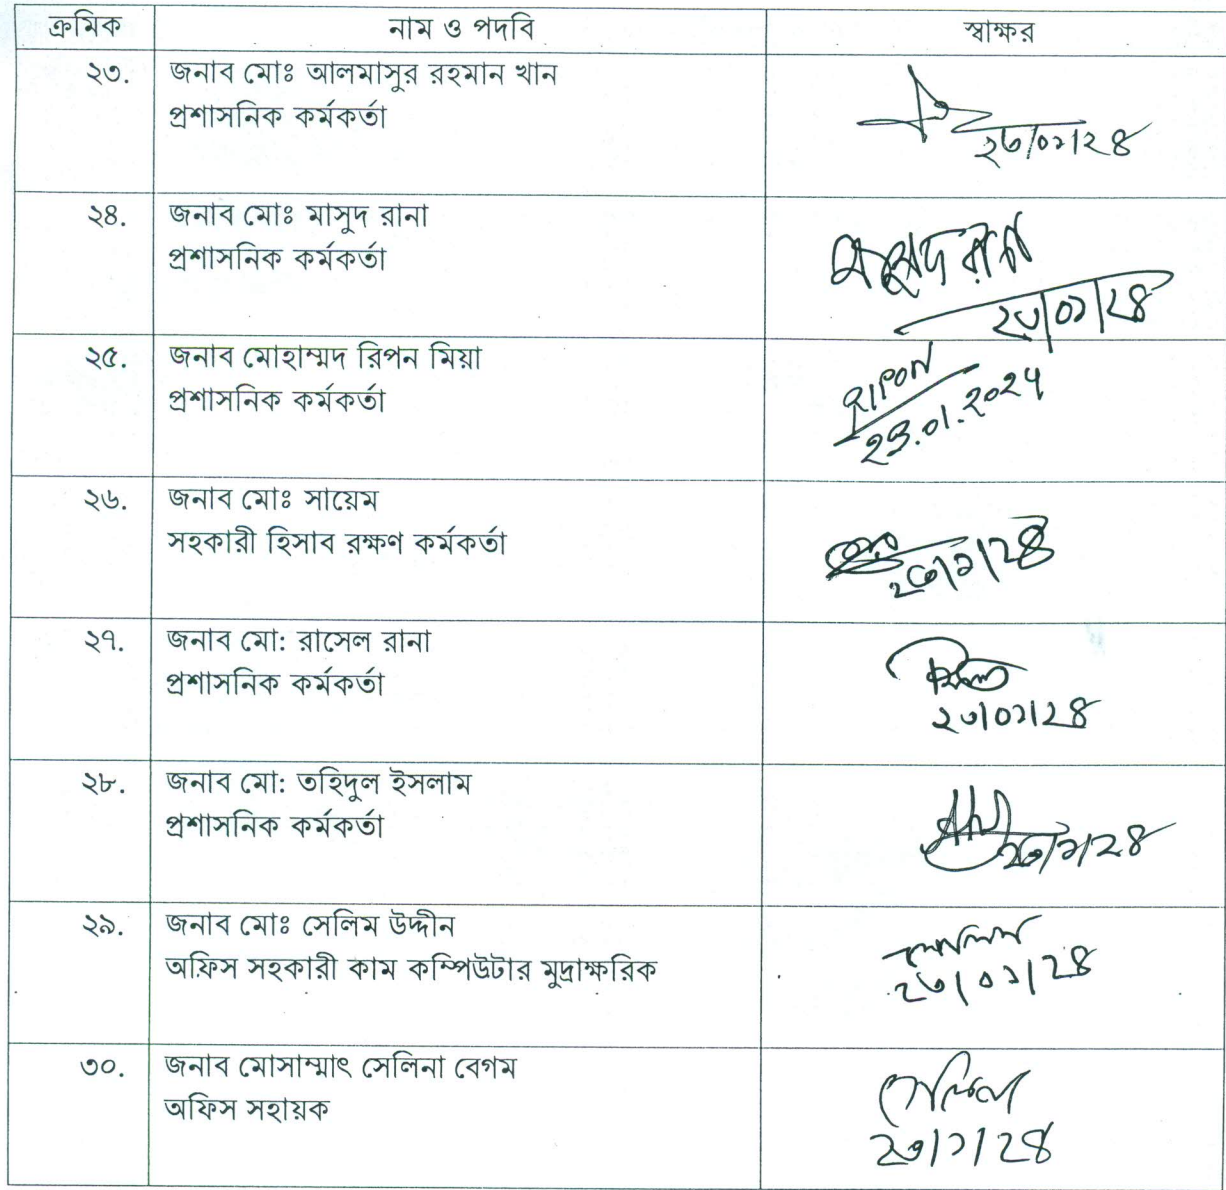 ক্রমিক নাম ও পদবি স্বাক্ষর
২৩. জনাব মোঃ আলমাসুর রহমান খান
প্রশাসনিক কর্মকর্তা
২৩/০১/২৪
২৪. জনাব মোঃ মাসুদ রানা
প্রশাসনিক কর্মকর্তা
মাসুদ রানা
২৩/০১/২৪
২৫. জনাব মোহাম্মদ রিপন মিয়া
প্রশাসনিক কর্মকর্তা
RIPON
23.01.2024
২৬. জনাব মোঃ সায়েম
সহকারী হিসাব রক্ষণ কর্মকর্তা
২৩/১/২৪
২৭. জনাব মো: রাসেল রানা
প্রশাসনিক কর্মকর্তা
২৩/০১/২৪
২৮. জনাব মো: তহিদুল ইসলাম
প্রশাসনিক কর্মকর্তা
২৩/১/২৪
২৯. জনাব মোঃ সেলিম উদ্দীন
অফিস সহকারী কাম কম্পিউটার মুদ্রাক্ষরিক
সেলিম
২৩/০১/২৪
৩০. জনাব মোসাম্মাৎ সেলিনা বেগম
অফিস সহায়ক
সেলিনা
২৩/১/২৪